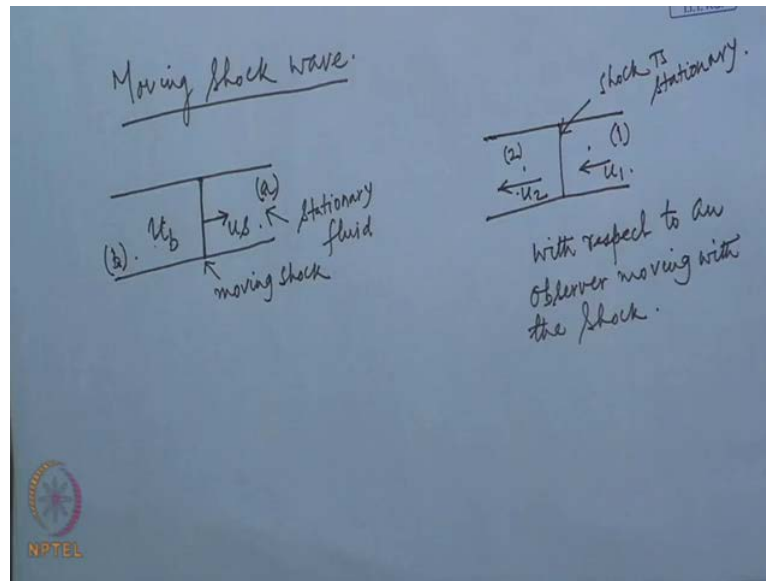 Moving Shock wave.
(b). u_b
us.
(a)
Stationary
fluid
moving shock
shock is
stationary.
(2)
u2
(1)
u1.
with respect to an
observer moving with
the shock.
NPTEL